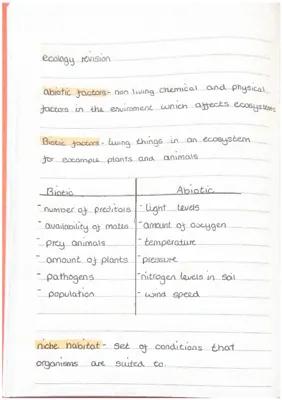 ecology revision
abiotic factors - non living chemical and physical
factors in the enviroment which affects ecosystems
Biotic factors - living things in an ecosystem
for example plants and animals
Biotic
Abiotic
- number of preditors
- light levels
- availability of mates
- amount of oxygen
- prey animals
- temperature
- amount of plants
- pressure
- pathogens
- nitrogen levels in soil
- population
- wind speed
niche habitat - set of conditions that
organisms are suited to.